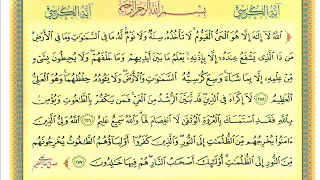 آية الكرسي بسم الله الرحمن الرحيم آية الكرسي
ٱللَّهُ لَآ إِلَٰهَ إِلَّا هُوَ ٱلْحَىُّ ٱلْقَيُّومُ لَا تَأْخُذُهُۥ سِنَةٌ وَلَا نَوْمٌ لَّهُۥ مَا فِى ٱلسَّمَٰوَٰتِ وَمَا فِى ٱلْأَرْضِ
مَن ذَا ٱلَّذِى يَشْفَعُ عِندَهُۥٓ إِلَّا بِإِذْنِهِۦ يَعْلَمُ مَا بَيْنَ أَيْدِيهِمْ وَمَا خَلْفَهُمْ وَلَا يُحِيطُونَ بِشَىْءٍ
مِّنْ عِلْمِهِۦٓ إِلَّا بِمَا شَآءَ وَسِعَ كُرْسِيُّهُ ٱلسَّمَٰوَٰتِ وَٱلْأَرْضَ وَلَا يَـُٔودُهُۥ حِفْظُهُمَا وَهُوَ ٱلْعَلِىُّ
ٱلْعَظِيمُ ٢٥٥ لَآ إِكْرَاهَ فِى ٱلدِّينِ قَد تَّبَيَّنَ ٱلرُّشْدُ مِنَ ٱلْغَىِّ فَمَن يَكْفُرْ بِٱلطَّٰغُوتِ وَيُؤْمِنۢ
بِٱللَّهِ فَقَدِ ٱسْتَمْسَكَ بِٱلْعُرْوَةِ ٱلْوُثْقَىٰ لَا ٱنفِصَامَ لَهَا وَٱللَّهُ سَمِيعٌ عَلِيمٌ ٢٥٦ ٱللَّهُ وَلِىُّ ٱلَّذِينَ
ءَامَنُوا۟ يُخْرِجُهُم مِّنَ ٱلظُّلُمَٰتِ إِلَى ٱلنُّورِ وَٱلَّذِينَ كَفَرُوٓا۟ أَوْلِيَآؤُهُمُ ٱلطَّٰغُوتُ يُخْرِجُونَهُم
مِّنَ ٱلنُّورِ إِلَى ٱلظُّلُمَٰتِ أُو۟لَٰٓئِكَ أَصْحَٰبُ ٱلنَّارِ هُمْ فِيهَا خَٰلِدُونَ ٢٥٧